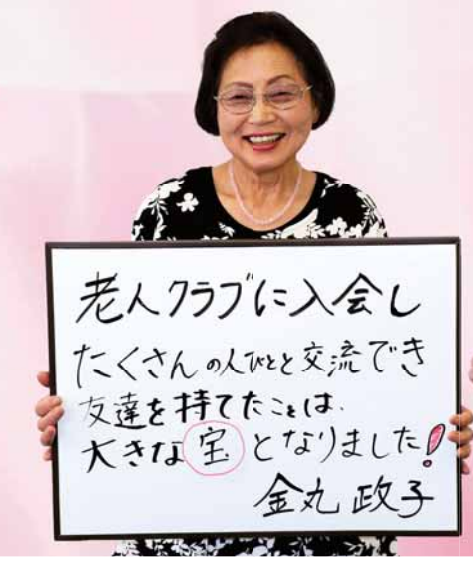 老人クラブに入会し
たくさんの人びとと交流でき
友達を持てたことは、
大きな宝となりました!
金丸 政子